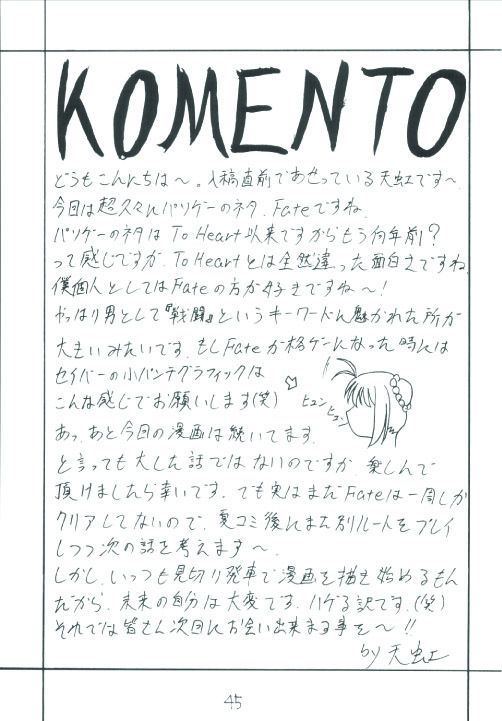 KOMENTO
どうもこんにちは〜。入稿直前であせっている天虹です〜。
今回は超久々にパソゲーのネタ、Fateですね。
パソゲーのネタは To Heart以来ですからもう何年前?
って感じですが、To Heartとは全然違った面白さですね
僕個人としてはFateの方が好きですね〜!
やっぱり男として『戦闘』というキーワードに魅かれた所が
大きいみたいです。もしFateが格ゲーになった時には
セイバーの小パンチグラフィックは
こんな感じでお願いします(笑)
ヒュン
ヒュン
あっ、あと今回の漫画は続いてます。
と言っても大した話ではないのですが、楽しんで
頂けましたら幸いです。でも実はまだFateは一周しか
クリアしてないので、夏コミ後にまた別ルートをプレイ
しつつ次の話を考えます〜。
しかし、いっつも見切り発車で漫画を描き始めるもん
だから、未来の自分は大変です。ハゲる訳です。(笑)
それでは皆さん次回にお会い出来ます事を〜!!
by 天虹
45